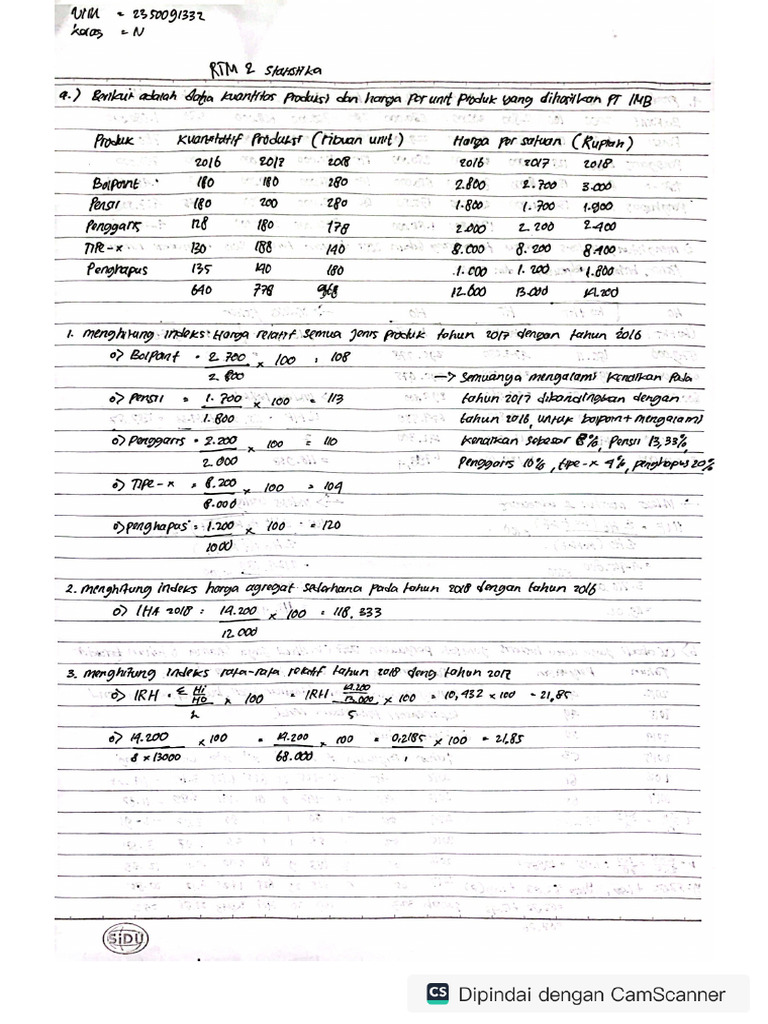 NIM = 2350091332
kelas = N
RTM 2 Statistika
a.) Berikut adalah data kuantitas Produksi dan harga Per unit Produk yang dihasilkan PT IMB
Produk Kuantitatif Produksi (ribuan unit) Harga Per satuan (Rupiah)
2016 2017 2018 2016 2017 2018
Bolpoint 180 280 2.800 2.700 3.000
Pensil 180 200 280 1.800 1.700 1.900
Penggaris 128 180 178 2.000 2.200 2.400
TIPe-x 130 188 140 8.000 8.200 8.400
Penghapus 135 140 180 1.000 1.200 1.800
640 778 12.600 13.000 14.200
1. menghitung indeks Harga relatif semua jenis produk tahun 2017 dengan tahun 2016
o) Bolpoint = 2.700 x 100 = 108
2.800
→ Semuanya mengalami kenaikan Pada
o) Pensil = 1.700 x 100 = 113 tahun 2017 dibandingkan dengan
1.800 tahun 2016, untuk bolpoint mengalami
o) Penggaris = 2.200 x 100 = 110 kenaikan sebesar 8%, Pensil 13,33%,
2.000 Penggaris 10%, tipe-x 4%, penghapus 20%
o) TIPe-x = 8.200 x 100 = 104
8.000
o) penghapus = 1.200 x 100 = 120
1000
2. menghitung indeks harga agregat sederhana pada tahun 2018 dengan tahun 2016
o) IHA 2018 = 14.200 x 100 = 118.333
12.000
3. menghitung indeks rata-rata relatif tahun 2018 deng tahun 2017
o) IRH = Σ Hi/Ho x 100 = IRH 14.200/13.000 x 100 = 10,432 x 100 = 21,85
5
o) 14.200 x 100 = 14.200 x 100 = 0,2185 x 100 = 21,85
8 x 13000 68.000
SiDU
CS Dipindai dengan CamScanner